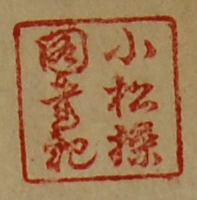 小松操
國書記